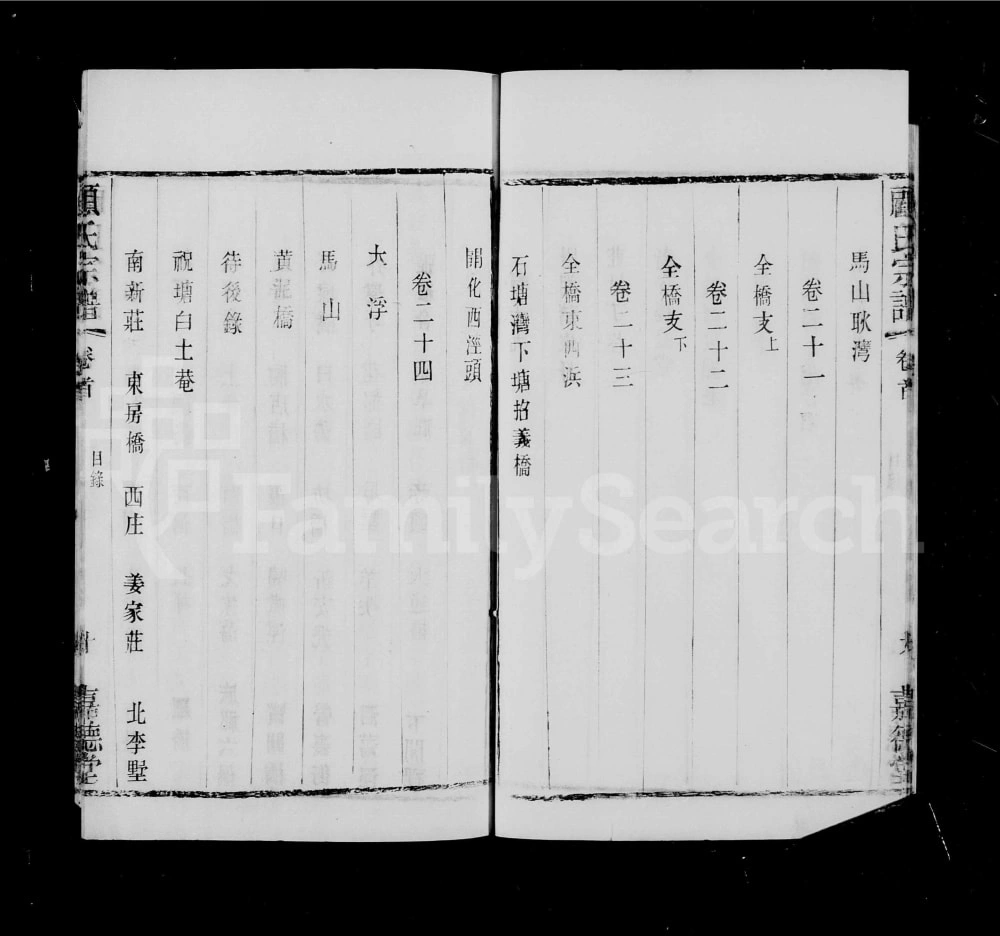 顧氏宗譜 卷首 九 嘉德堂
馬山耿灣
卷二十一
全橋支上
卷二十二
全橋支下
卷二十三
全橋東西浜
石塘灣下塘招義橋
開化西涇頭
卷二十四
大浮
馬山
黃泥橋
待後錄
祝塘白土菴
南新莊 東房橋 西庄 姜家莊 北李墅
顧氏宗譜 卷首 目錄 十 嘉德堂
FamilySearch